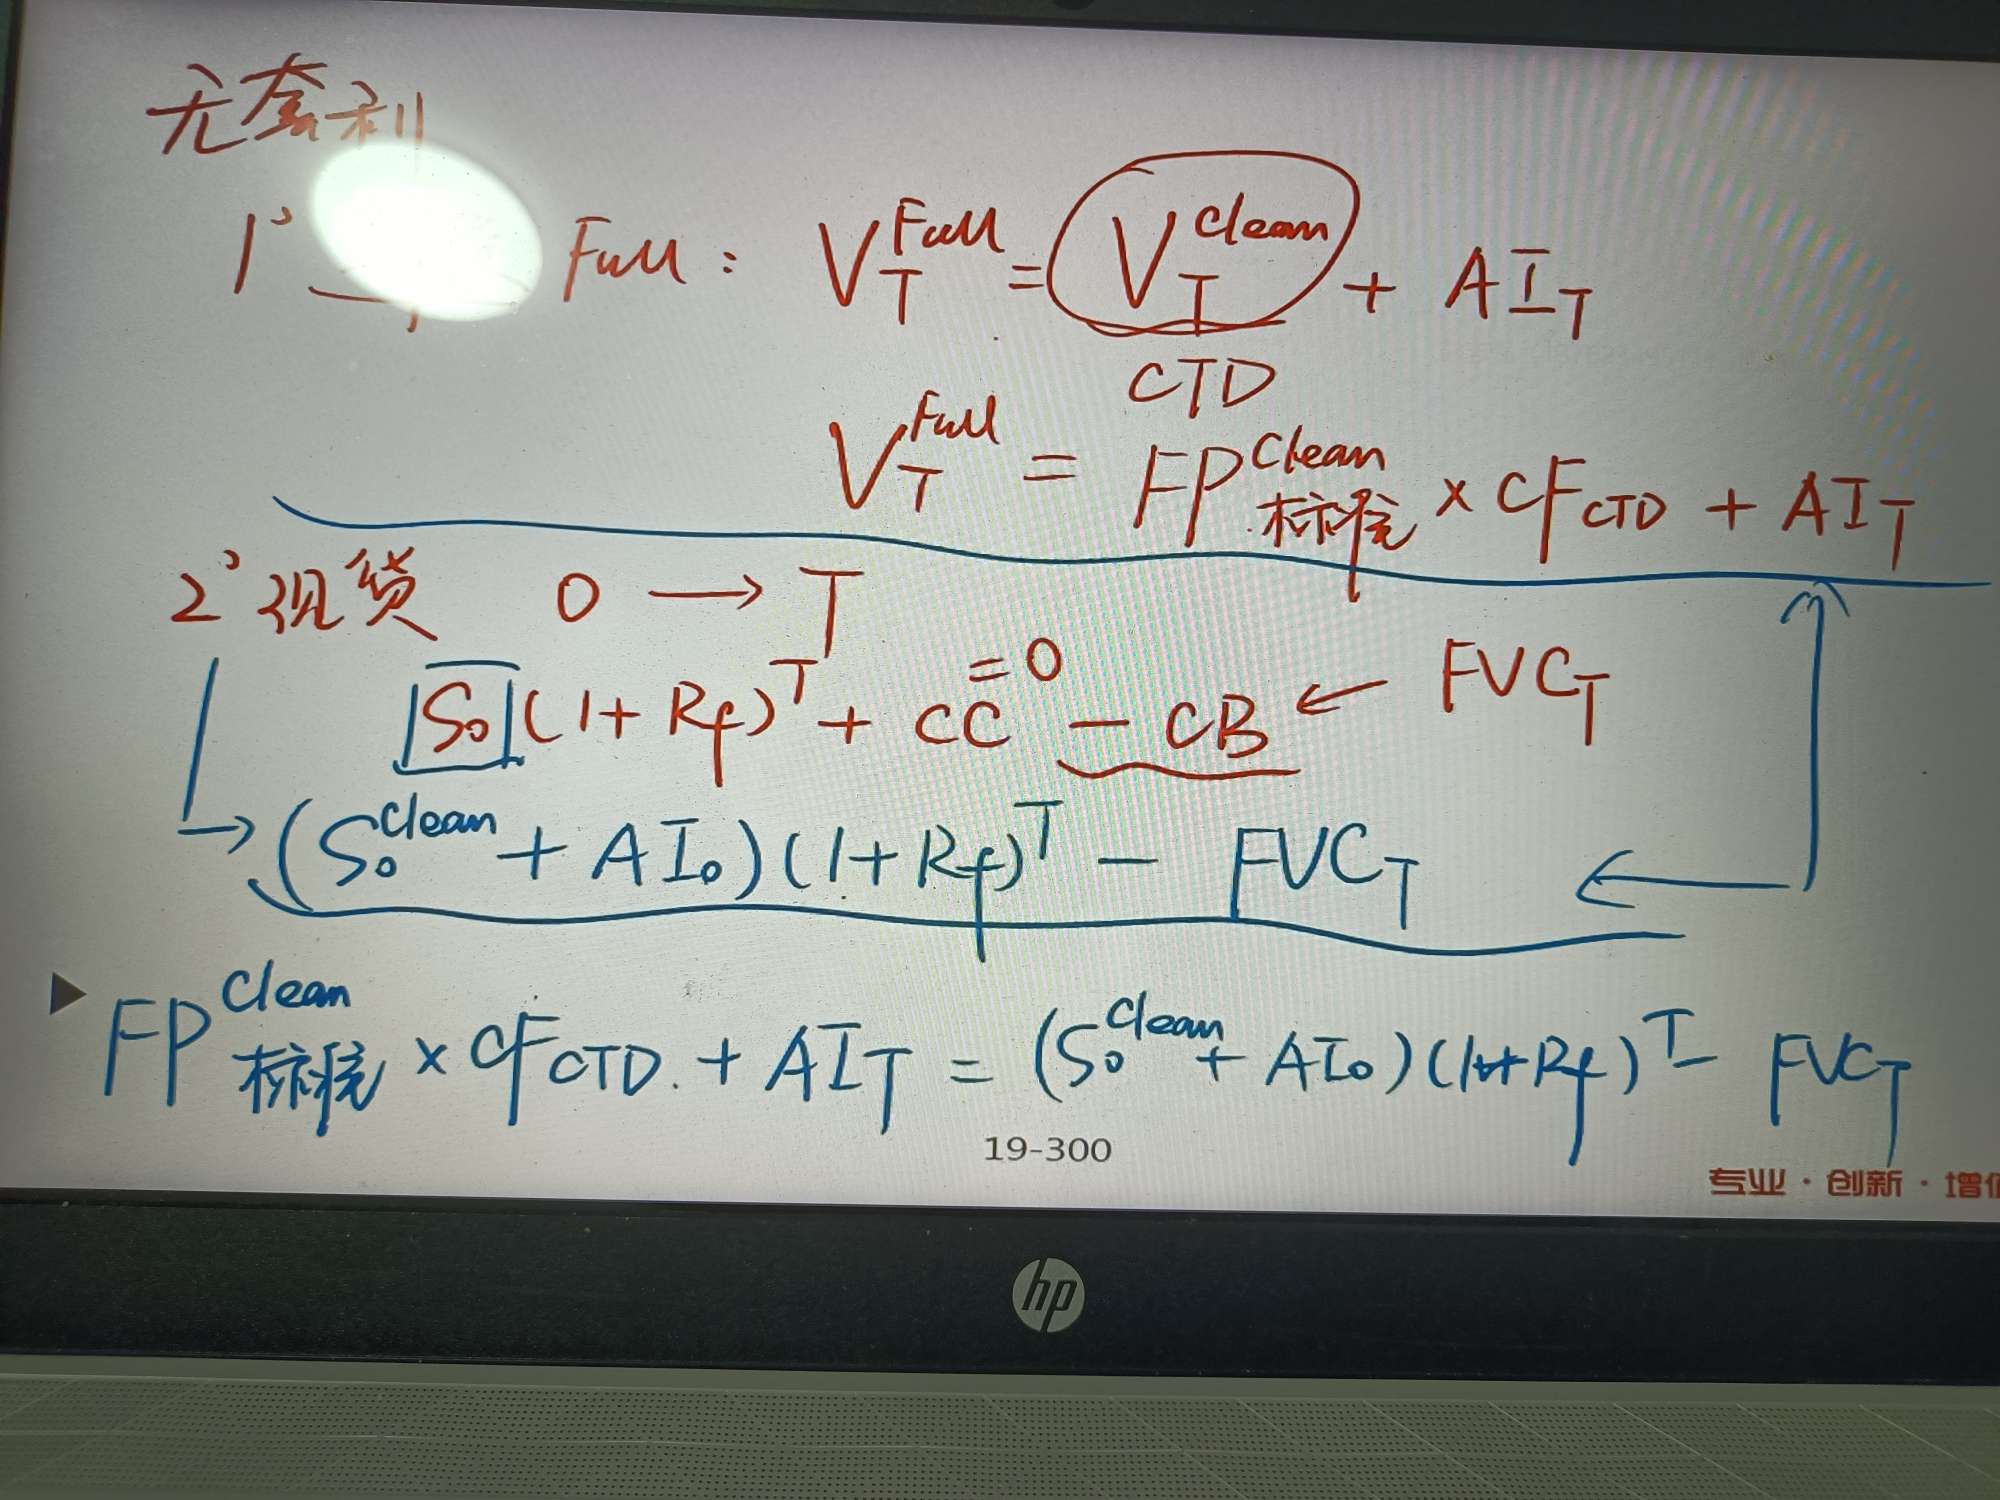 无套利
1° Full: V_T^Full = V_T^Clean + AI_T
CTD
V_T^Full = FP_标准^Clean × CF_CTD + AI_T
2° 现货 0 → T
=0
S₀(1+Rf)^T + CC - CB ← FVC_T
→ (S₀^Clean + AI₀)(1+Rf)^T - FVC_T ←
FP_标准^Clean × CF_CTD + AI_T = (S₀^Clean + AI₀)(1+Rf)^T - FVC_T
19-300
专业·创新·增值
hp